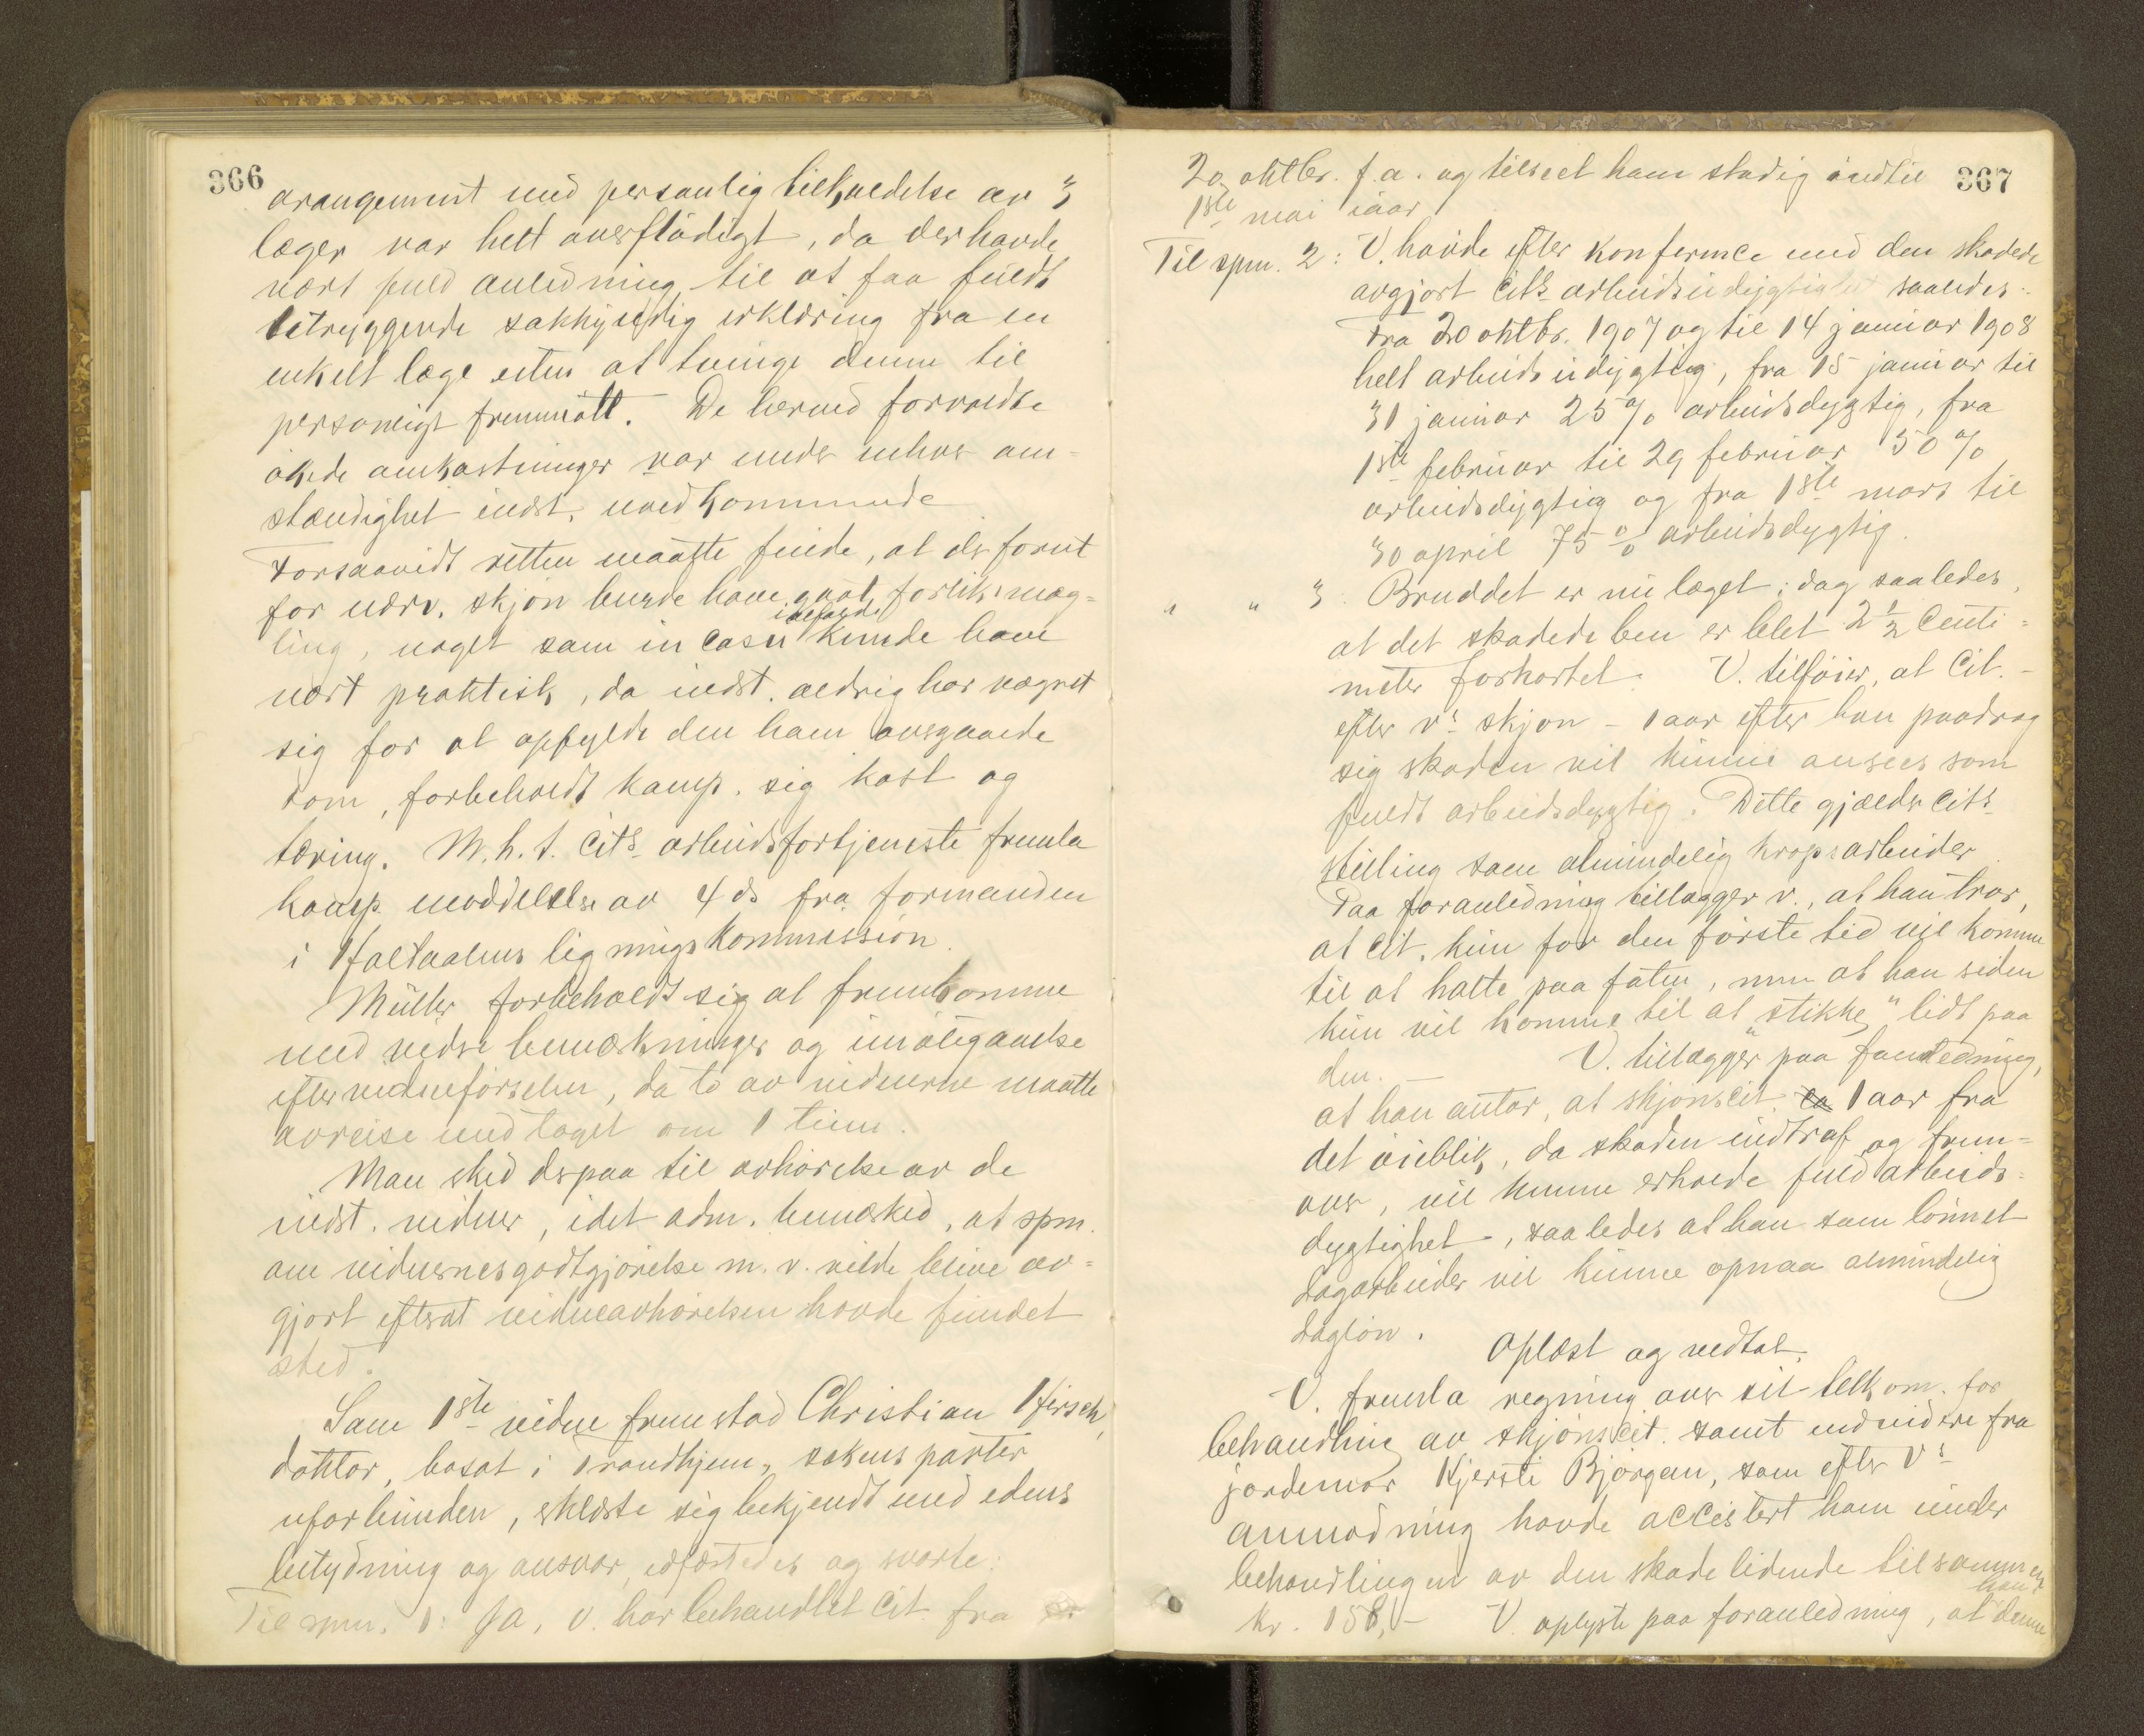 366
arangement med personlig tilkaldelse av 3
læger var helt overflødigt, da der havde
vært fuld anledning til at faa fuldt
betryggende sakkyndig erklæring fra en
enkelt læge uten at tvinge denne til
personligt fremmøtt. De herved forvoldte
økede omkostninger var under enhver om=
stændighet indst. uvedkommende
Forsaavidt retten maatte finde, at der forut
for nærv. skjøn burde have gaat forliksmæg=
ling, noget som in casu ialfald kunde have
vært praktisk, da indst. aldrig har vægret
sig for at opfylde den ham overgaaede
dom, forbeholdt komp. sig kost og
tæring. M.h.t. cits arbeidsfortjeneste fremla
komp. meddelelse av 4 ds fra formanden
i Holtaalens ligningskommission.
Müller forbeholdt sig at fremkomme
med videre bemerkninger og imøtegaaelse
efter vidneførselen, da to av vidnerne maatte
avreise med toget om 1 time.
Man sked derpaa til avhørelse av de
indst. vidner, idet adm. bemerked, at spm.
om vidnernes godtgjørelse m.v. vilde blive av=
gjort efterat vidneavhørelsen havde fundet
sted.
Som 1ste vidne fremstod Christian Hirsch,
doktor, bosat i Trondhjem, sakens parter
uforbunden, erklærte sig bekjendt med edens
betydning og ansvar, edfæstedes og svarte:
Til spm. 1: Ja, v. har behandlet cit. fra
367
20 oktbr. f.a. og tilseet ham stadig indtil
1ste mai iaar
Til spm. 2: V. havde efter konference med den skadede
avgjort cits arbeidsudygtighet saaledes:
Fra 20 oktbr. 1907 og til 14 januar 1908
helt arbeidsudygtig, fra 15 januar til
31 januar 25% arbeidsdygtig, fra
1ste februar til 29 februar 50%
arbeidsdygtig og fra 1ste mars til
30 april 75% arbeidsdygtig.
" " 3. Bruddet er nu læget; dog saaledes,
at det skadede ben er blet 2 1/2 centi=
meter forkortet. V. tilføier, at cit. -
efter vs skjøn - 1 aar efter han paadrog
sig skaden vil kunne ansees som
fuldt arbeidsdygtig. Dette gjælder cits
stilling som almindelig kropsarbeider.
Paa foranledning tillægger v., at han tror,
at cit. kun for den første tid vil komme
til at halte paa foten, men at han siden
kun vil komme til at „stikke" lidt paa
den. — V. tillægger paa foranledning,
at han antar, at skjønscit. ca 1 aar fra
det øieblik, da skaden indtraf og frem=
over, vil kunne erholde fuld arbeids=
dygtighet, saaledes at han som lønnet
dagarbeider vil kunne opnaa almindelig
dagløn.
Oplæst og vedtat.
V. fremla regning over sit tilkom. for
behandling av skjønscit. samt endvidere fra
jordemor Kjersti Bjørgan, som efter vs
anmodning havde accistert ham under
behandlingen av den skadelidende tilsammen
kr. 158,- V. oplyste paa foranledning, at han denne